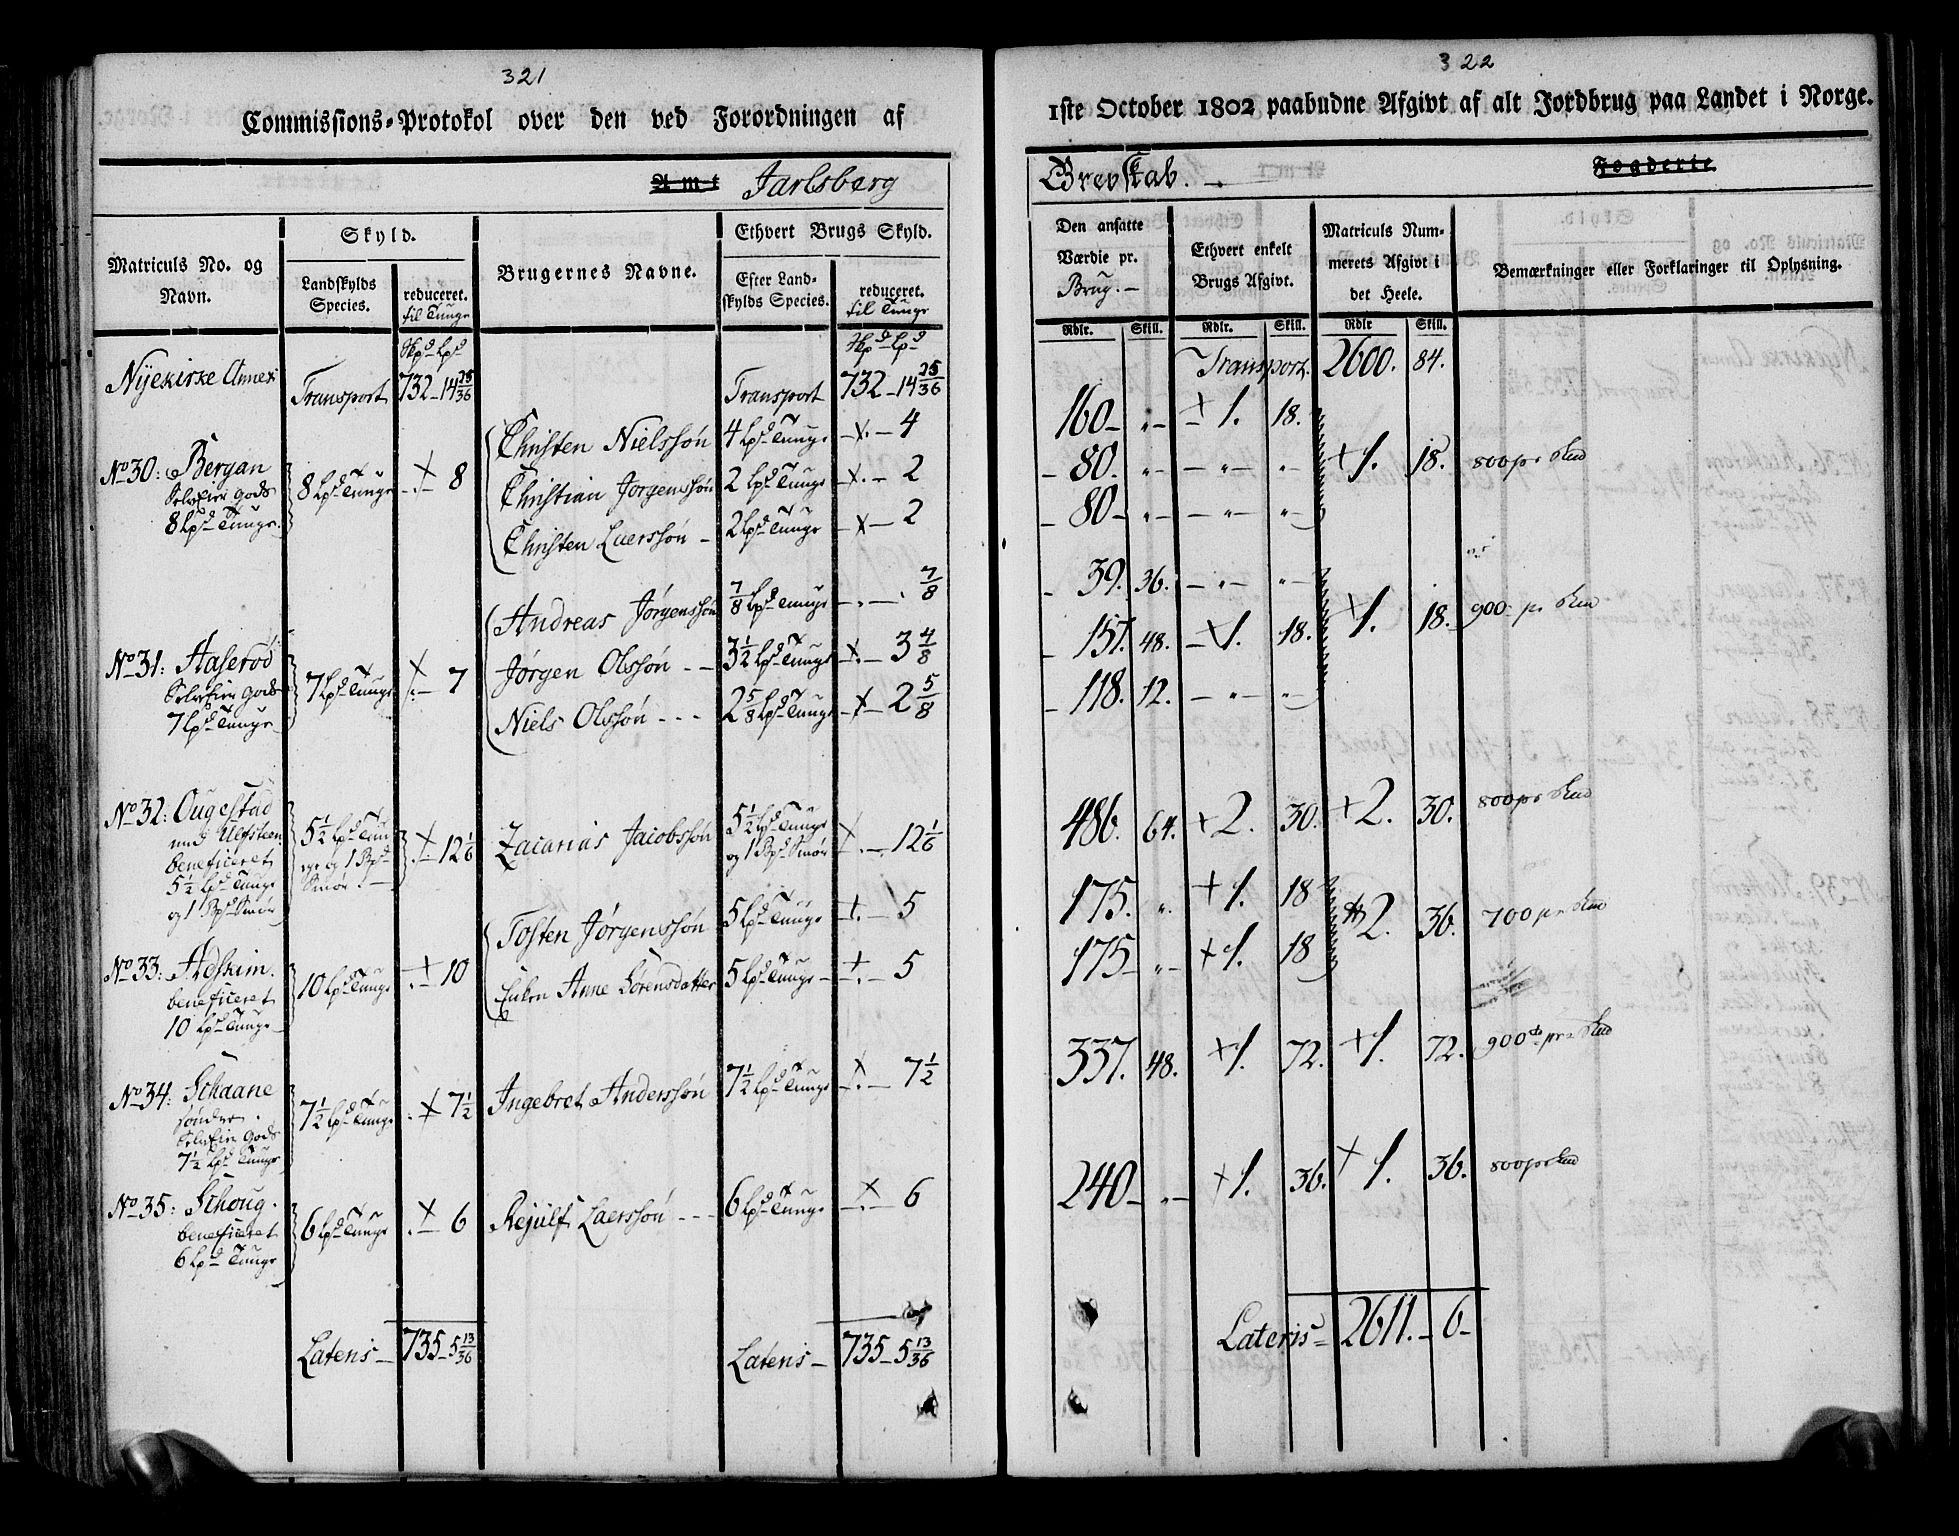 321
Commissions-Protokol over den ved Forordningen af
Amt Jarlsberg
Matriculs No. og Navn.
Skyld.
Landskylds Species.
reduceret. til Tunge
Brugernes Navne.
Ethvert Brugs Skyld.
Efter Landskylds Species.
reduceret. til Tunge
Skpd Lpd
Skpd Lpd
Nyekirke Annex Transport 732 - 14 25/36 Transport 732 - 14 25/36
No 30: Bergan
SelvEier Gods
8 Lpd Tunge
8 Lpd Tunge 8
Christen Nielssøn 4 Lpd Tunge 4
Christian Jørgenssøn 2 Lpd Tunge 2
Christen Laerssøn 2 Lpd Tunge 2
No 31: Aaserød
SelvEier Gods
7 Lpd Tunge
7 Lpd Tunge 7
Andreas Jørgenssøn 7/8 Lpd Tunge 7/8
Jørgen Olssøn 3 1/2 Lpd Tunge 3 4/8
Niels Olssøn 2 5/8 Lpd Tunge 2 5/8
No 32: Ougestad
med Ulfsteen
beneficeret
5 1/2 Lpd Tunge
og 1 Bpd Smør
5 1/2 Lpd Tunge og 1 Bpd Smør 12 1/6
Zacarias Jacobssøn 5 1/2 Lpd Tunge og 1 Bpd Smør 12 1/6
No 33: Adskim.
beneficeret
10 Lpd Tunge
10 Lpd Tunge 10
Tosten Jørgenssøn 5 Lpd Tunge 5
Enken Anne Sørensdatter 5 Lpd Tunge 5
No 34: Schaane
søndre.
SelvEier Gods
7 1/2 Lpd Tunge
7 1/2 Lpd Tunge 7 1/2
Ingebret Anderssøn 7 1/2 Lpd Tunge 7 1/2
No 35: Schoug.
beneficeret
6 Lpd Tunge
6 Lpd Tunge 6
Rejulf Laerssøn 6 Lpd Tunge 6
Latens 735 - 5 13/36 Latens 735 - 5 13/36
322
1ste October 1802 paabudne Afgivt af alt Jordbrug paa Landet i Norge.
Grevskab. Fogderie.
Den ansatte Værdie pr. Brug.
Ethvert enkelt Brugs Afgivt.
Matriculs Nummerets Afgivt i det Heele.
Bemærkninger eller Forklaringer til Oplysning.
Rdlr. Skill. Rdlr. Skill. Rdlr Skill.
Transport. 2600. 84.
160 " 1. 18.
80. " " " 1. 18. 800 pr Skd
80 " " "
39. 36. " "
157. 48. 1. 18. 1. 18. 900 pr Skd
118. 12. " "
486. 64. 2. 30. 2. 30. 800 pr Skd
175. " 1. 18 2. 36. 700 pr Skd
175 " 1. 18
337. 48. 1. 72. 1. 72. 900 pr Skd
240 " 1. 36. 1. 36. 800 pr Skd
Lateris 2611. 6